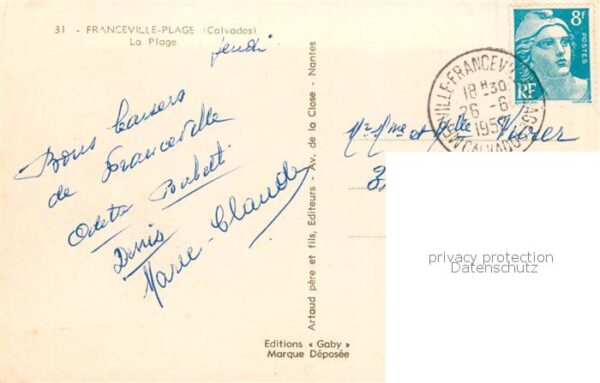 31 - FRANCEVILLE-PLAGE (Calvados)
La Plage
jeudi
Bons baisers
de Franceville
Odette
Denis
Marie-Claude
Artaud père et fils, Editeurs - Av. de la Close - Nantes
Editions « Gaby »
Marque Déposée
8F
POSTES
RF
18H30
26-6
195
CALVADOS
Mr Mme et Melle
privacy protection
Datenschutz